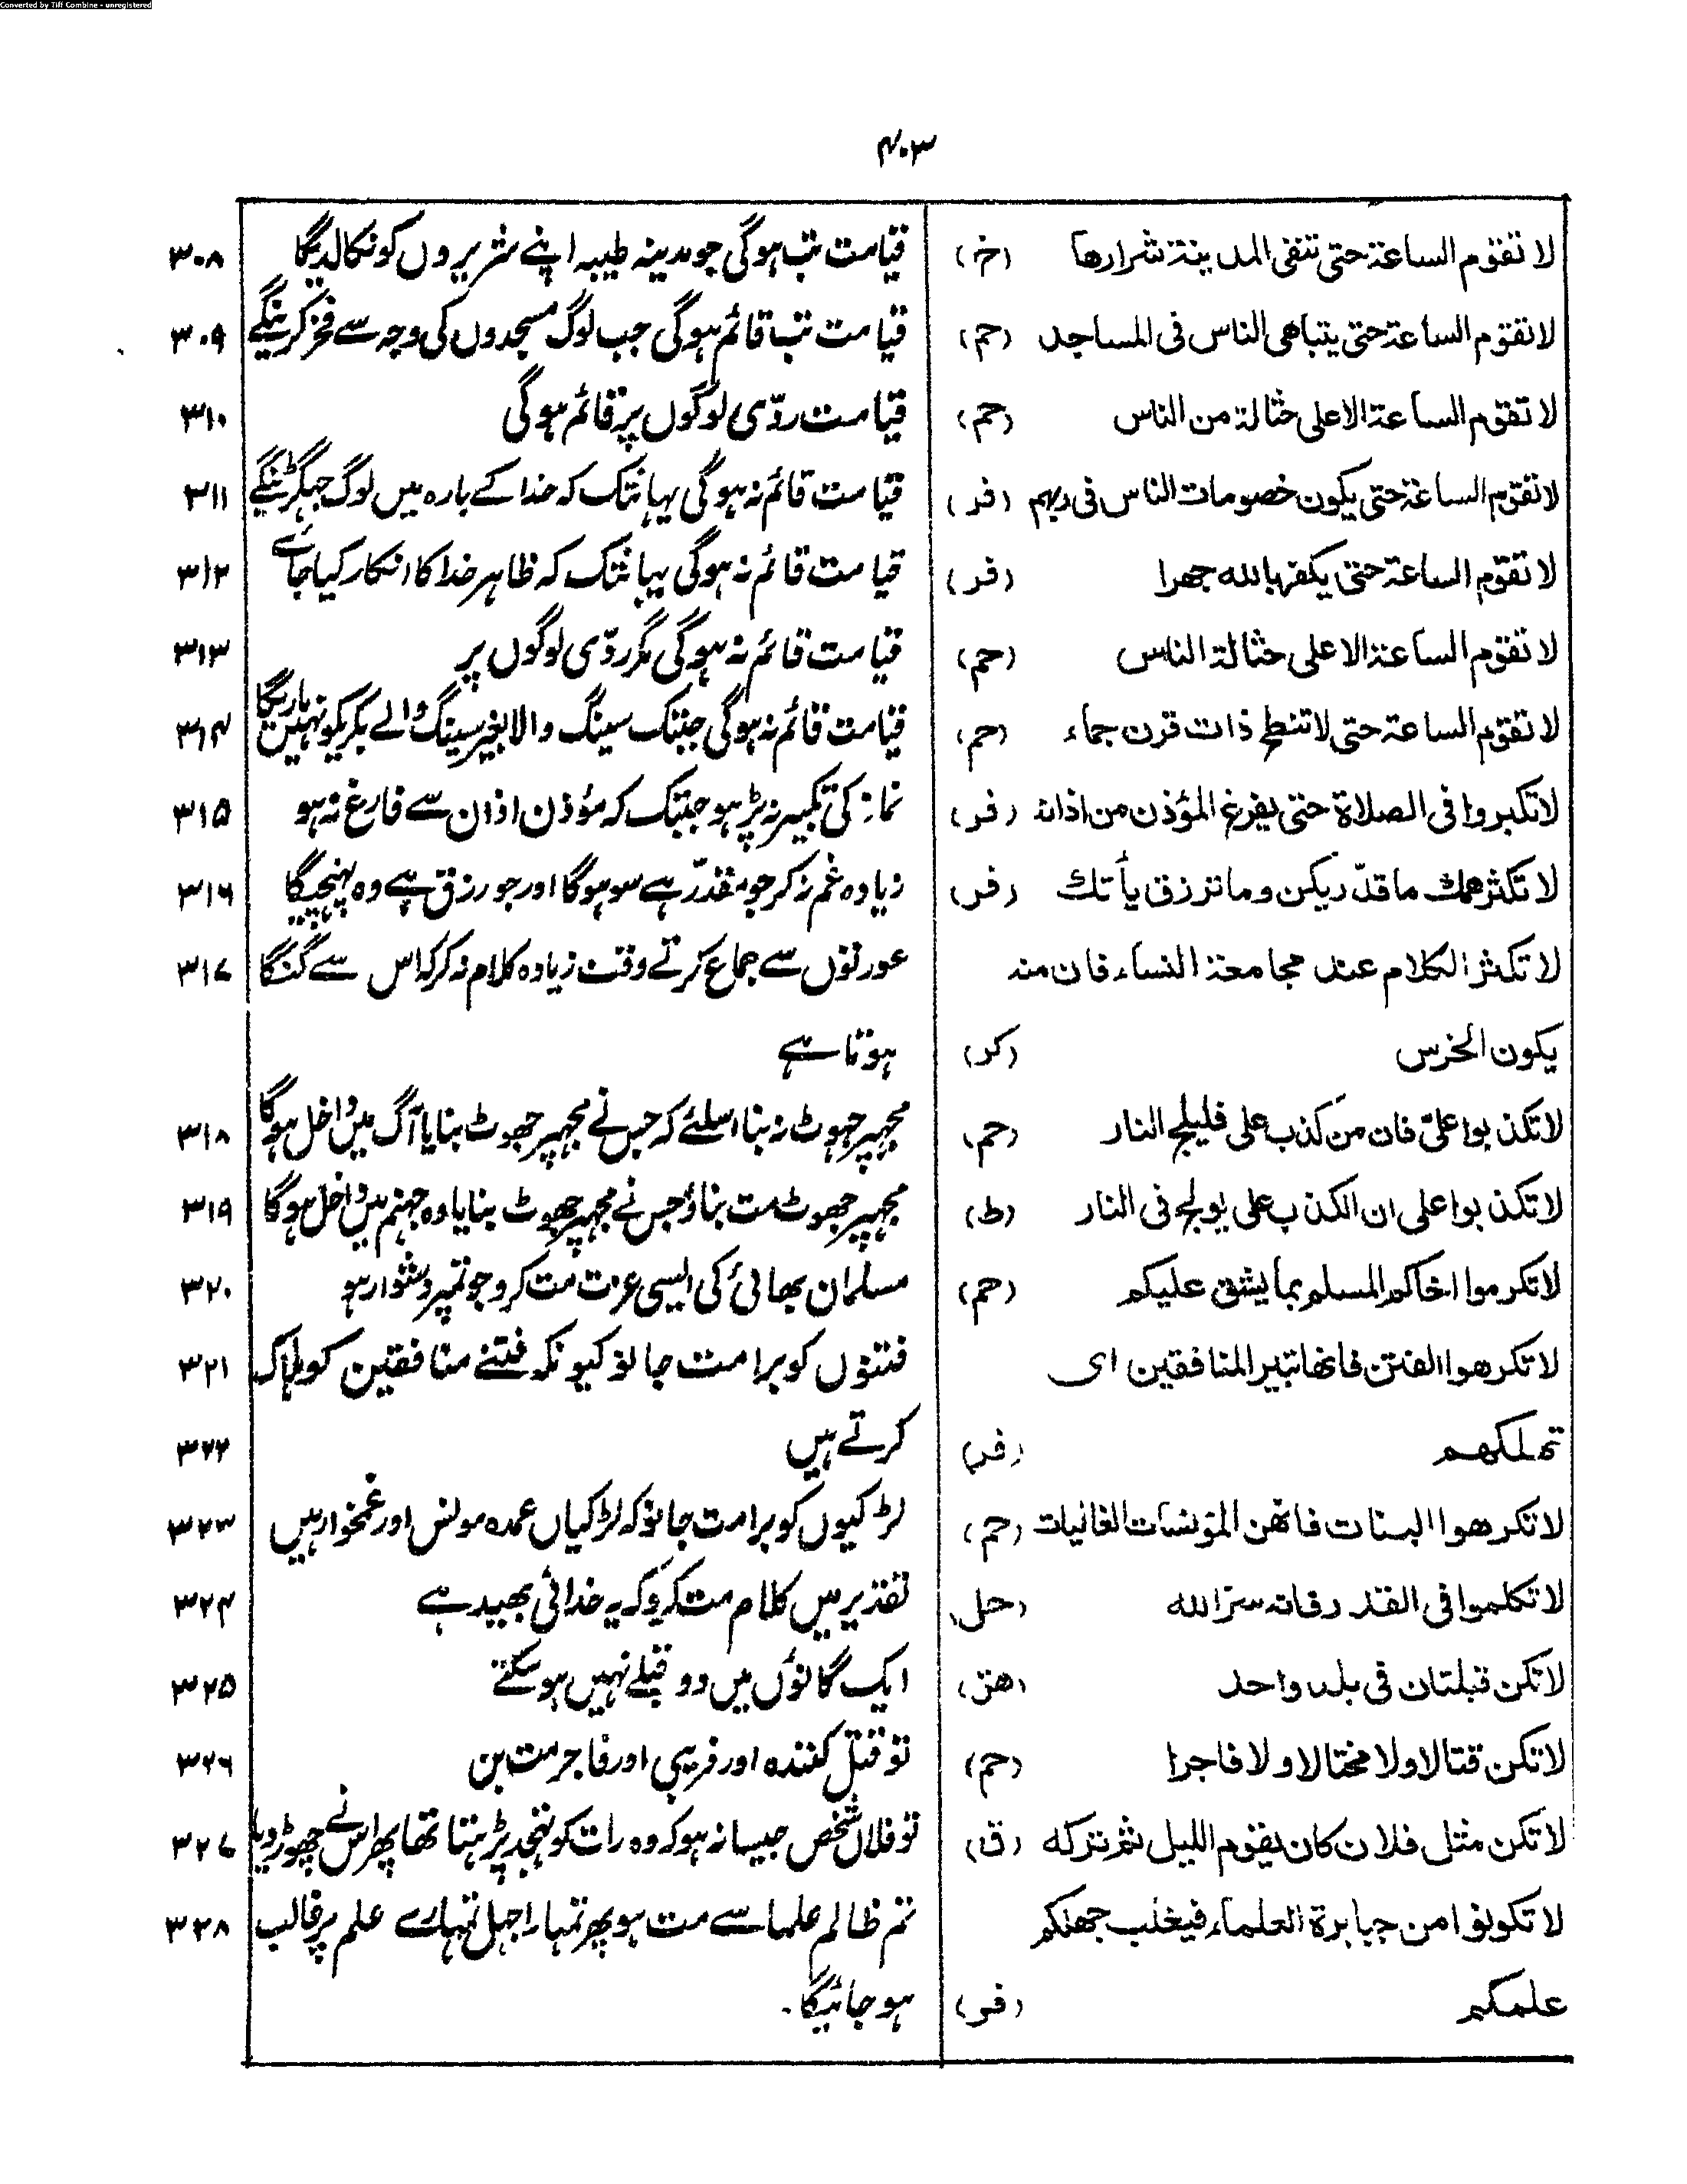 Converted by Tiff Combine - unregistered
۴۰۳
لا تقوم الساعة حتى تنفى المدينة شرارها (خ) قیامت تب ہوگی جو مدینہ طیبہ اپنے شریروں کو نکالدیگا ۳۰۸
لا تقوم الساعة حتى يتباهى الناس فى المساجد (حم) قیامت تب قائم ہوگی جب لوگ مسجدوں کی وجہ سے فخر کرینگے ۳۰۹
لا تقوم الساعة الا على حثالة من الناس (حم) قیامت ردّی لوگوں پر قائم ہوگی ۳۱۰
لا تقوم الساعة حتى يكون خصومات الناس فى ربهم (فر) قیامت قائم نہ ہوگی یہانتک کہ خدا کے بارہ میں لوگ جہگڑینگے ۳۱۱
لا تقوم الساعة حتى يكفر بالله جهرا (فر) قیامت قائم نہ ہوگی یہانتک کہ ظاہر خدا کا انکار کیا جائے ۳۱۲
لا تقوم الساعة الا على حثالة الناس (حم) قیامت قائم نہ ہوگی مگر ردّی لوگوں پر ۳۱۳
لا تقوم الساعة حتى لا تنطح ذات قرن جماء (حم) قیامت قائم نہ ہوگی جبتک سینگ والا بغیر سینگ والے بکریکو نہیں ماریگا ۳۱۴
لا تكبروا فى الصلاة حتى يفرغ المؤذن من اذانه (فر) نماز کی تکبیر نہ پڑہو جبتک کہ مؤذن اذان سے فارغ نہ ہو ۳۱۵
لا تكثر همك ما قدّر يكن وما ترزق يأتك (فر) زیادہ غم نہ کر جو مقدّر ہے سو ہوگا اور جو رزق ہے وہ پہنچیگا ۳۱۶
لا تكثر الكلام عند مجامعة النساء فان منه عورتوں سے جماع کرتے وقت زیادہ کلام نہ کر کہ اس سے گنگا ۳۱۷
يكون الخرس (كر) ہوتا ہے
لا تكذبوا علىّ فان من كذب على فليلج النار (حم) مجہپر جہوٹ نہ بنا اسلئے کہ جس نے مجہپر جھوٹ بنایا آگ میں داخل ہوگا ۳۱۸
لا تكذبوا على ان الكذب على يولج فى النار (ط) مجہپر جھوٹ مت بناؤ جس نے مجہپر جھوٹ بنایا وہ جہنم میں داخل ہوگا ۳۱۹
لا تكرموا اخاكم المسلم بما يشق عليكم (حم) مسلمان بھائی کی ایسی عزت مت کرو جو تمپر دشوار ہو ۳۲۰
لا تكرهوا الفتن فانها تبير المنافقين اى فتنوں کو برا مت جانو کیونکہ فتنے منافقین کو ہلاک ۳۲۱
تهلكهم (فر) کرتے ہیں ۳۲۲
لا تكرهوا البنات فانهن المؤنسات الغاليات (حم) لڑکیوں کو برا مت جانو کہ لڑکیاں عمدہ مونس اور غمخوار ہیں ۳۲۳
لا تكلموا فى القدر فانه سر الله (حل) تقدیر میں کلام مت کرو کہ یہ خدائی بھید ہے ۳۲۴
لا تكن قبلتان فى بلد واحد (هق) ایک گانوں میں دو قبلے نہیں ہو سکتے ۳۲۵
لا تكن قتالا ولا مختالا ولا فاجرا (حم) تو قتل کنندہ اور فریبی اور فاجر مت بن ۳۲۶
لا تكن مثل فلان كان يقوم الليل ثم تركه (ق) تو فلاں شخص جیسا نہ ہو کہ وہ رات کو تہجد پڑہتا تھا پھر اس نے چھوڑ دیا ۳۲۷
لا تكونوا من جبابرة العلماء فيغلب جهلكم تم ظالم علما سے مت ہو پھر تمہارا جہل تمہارے علم پر غالب ۳۲۸
علمكم (فر) ہو جائیگا۔